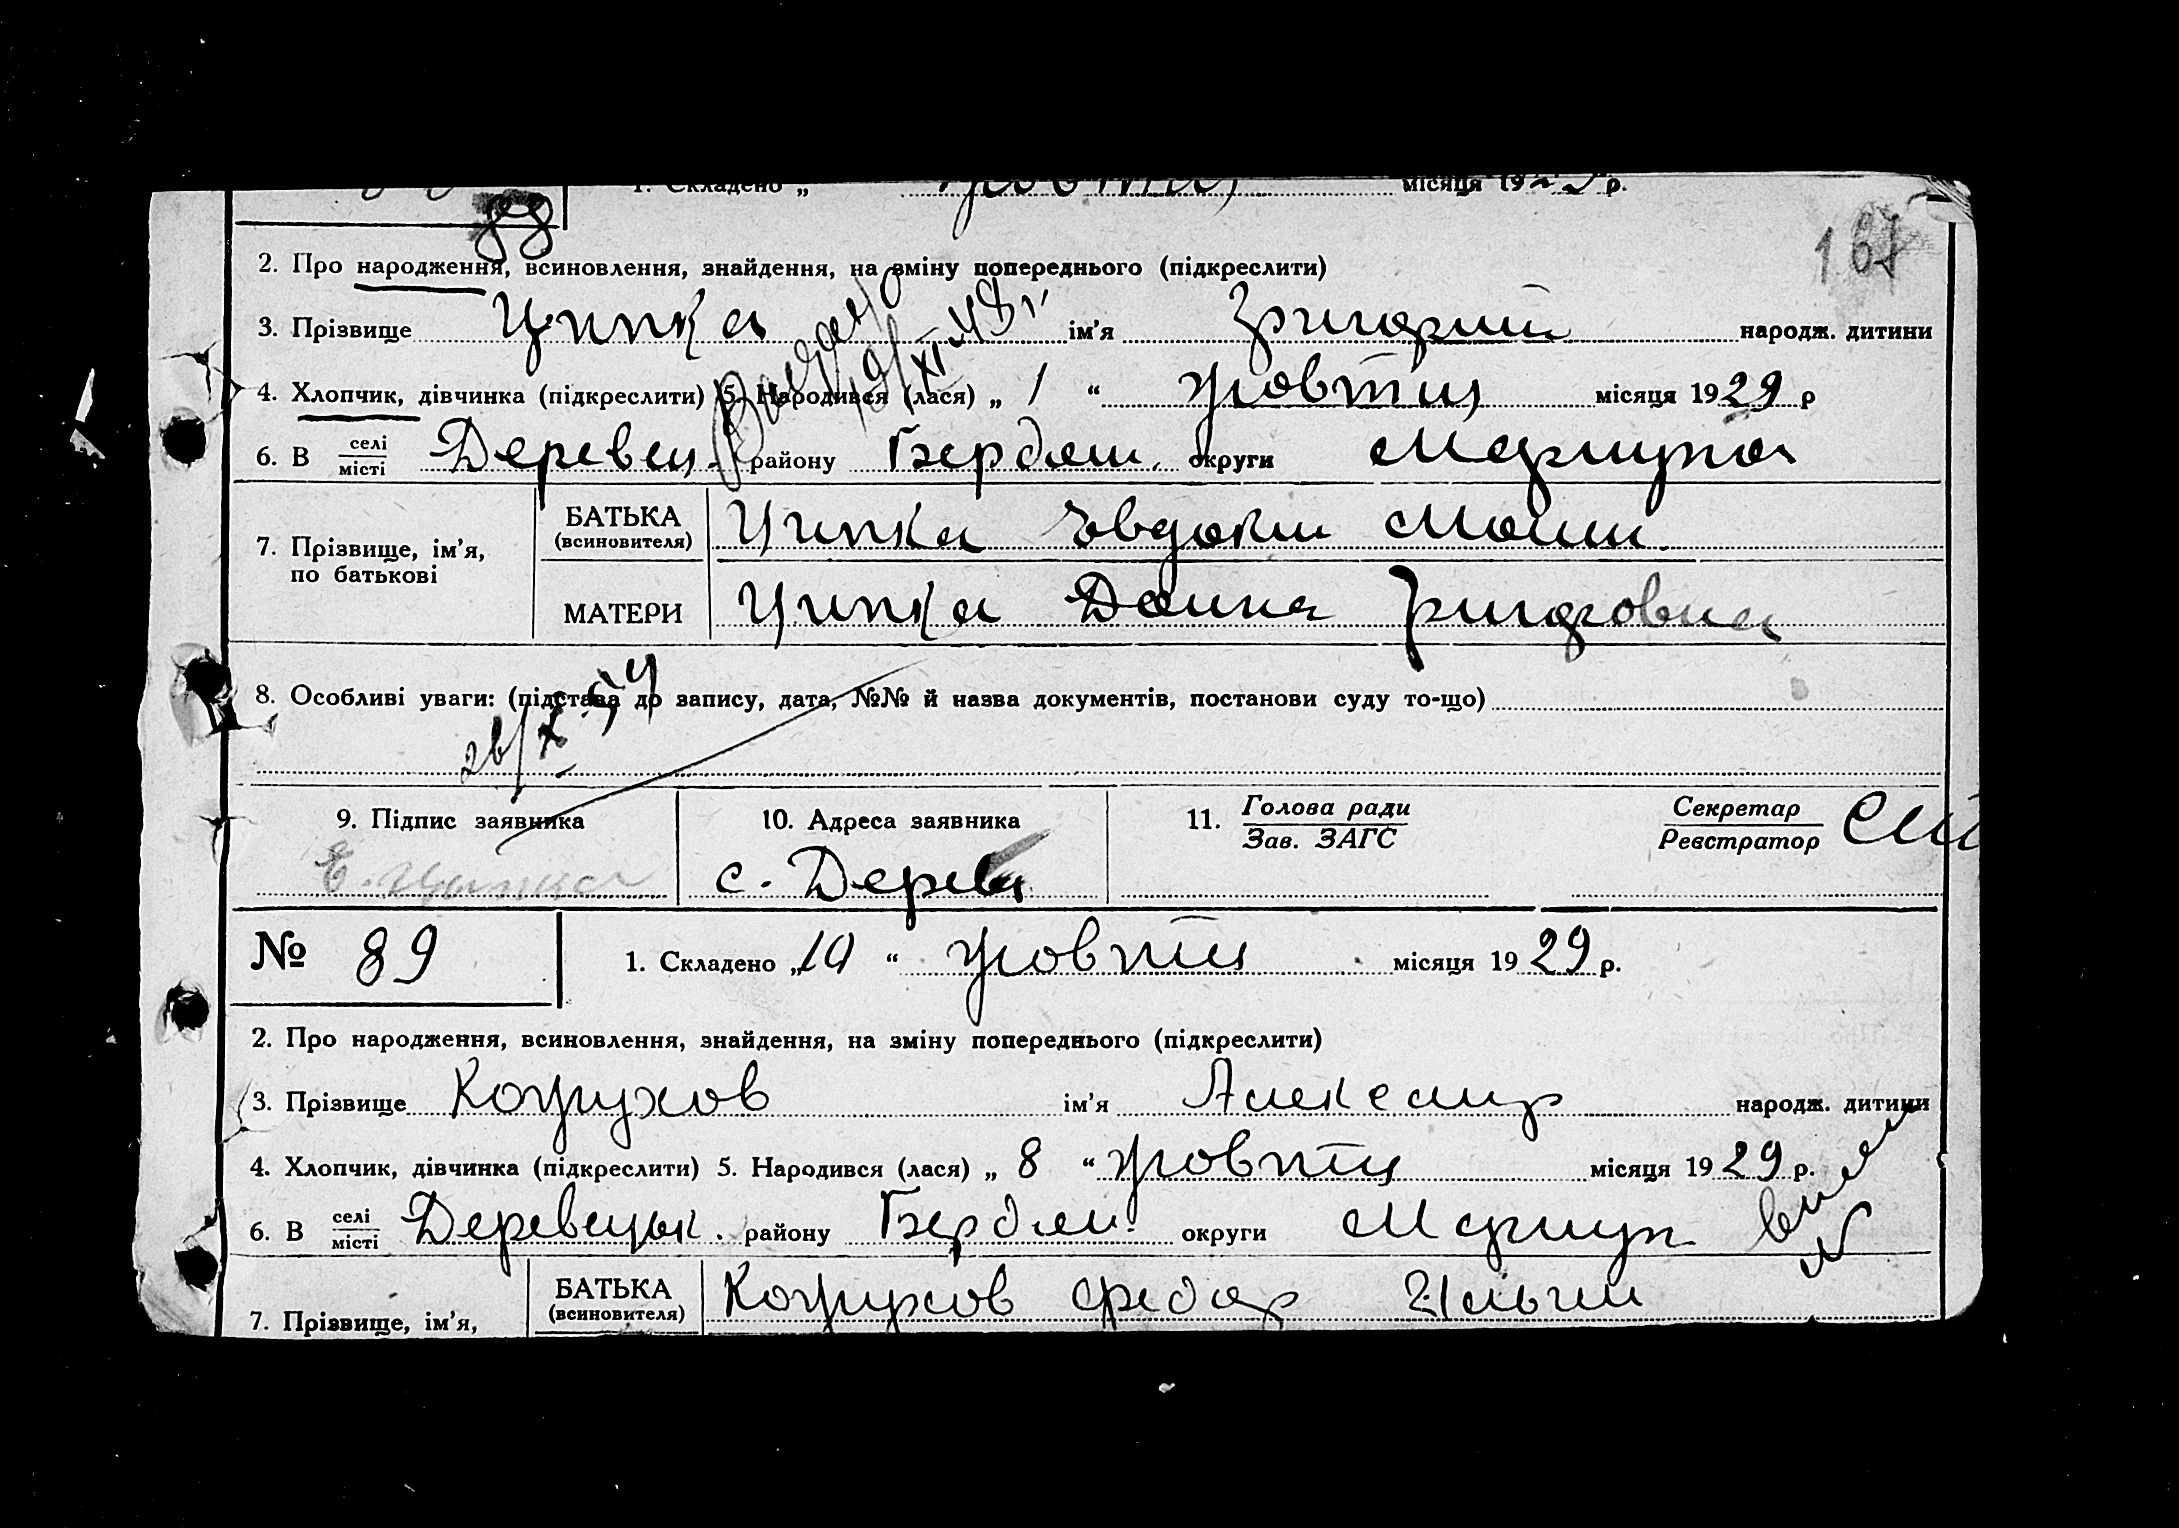 1. Складено „ жовтня місяця 1929 р.
167
2. Про народження, всиновлення, знайдення, на зміну попереднього (підкреслити)
3. Прізвище Ципка ім'я Григорий народж. дитини
4. Хлопчик, дівчинка (підкреслити) 5. Народився (лася) „ 1 “ жовтня місяця 1929 р
6. В селі місті Деревец. району Бердян. округи Маріупол
7. Прізвище, ім'я, по батькові
БАТЬКА (всиновителя) Ципка Евдоким
МАТЕРИ Ципка Григоровна
8. Особливі уваги: (підстава до запису, дата, №№ й назва документів, постанови суду то-що)
26/X-
9. Підпис заявника 10. Адреса заявника 11. Голова ради Зав. ЗАГС Секретар Реєстратор
Е. Ципка с. Дерев
№ 89 1. Складено „10 “ жовтня місяця 1929 р.
2. Про народження, всиновлення, знайдення, на зміну попереднього (підкреслити)
3. Прізвище Кожухов ім'я Александр народж. дитини
4. Хлопчик, дівчинка (підкреслити) 5. Народився (лася) „ 8 “ жовтня місяця 1929 р.
6. В селі місті Деревецьк. району Бердян. округи Маріуп
7. Прізвище, ім'я,
БАТЬКА (всиновителя) Кожухов Федор Ильич